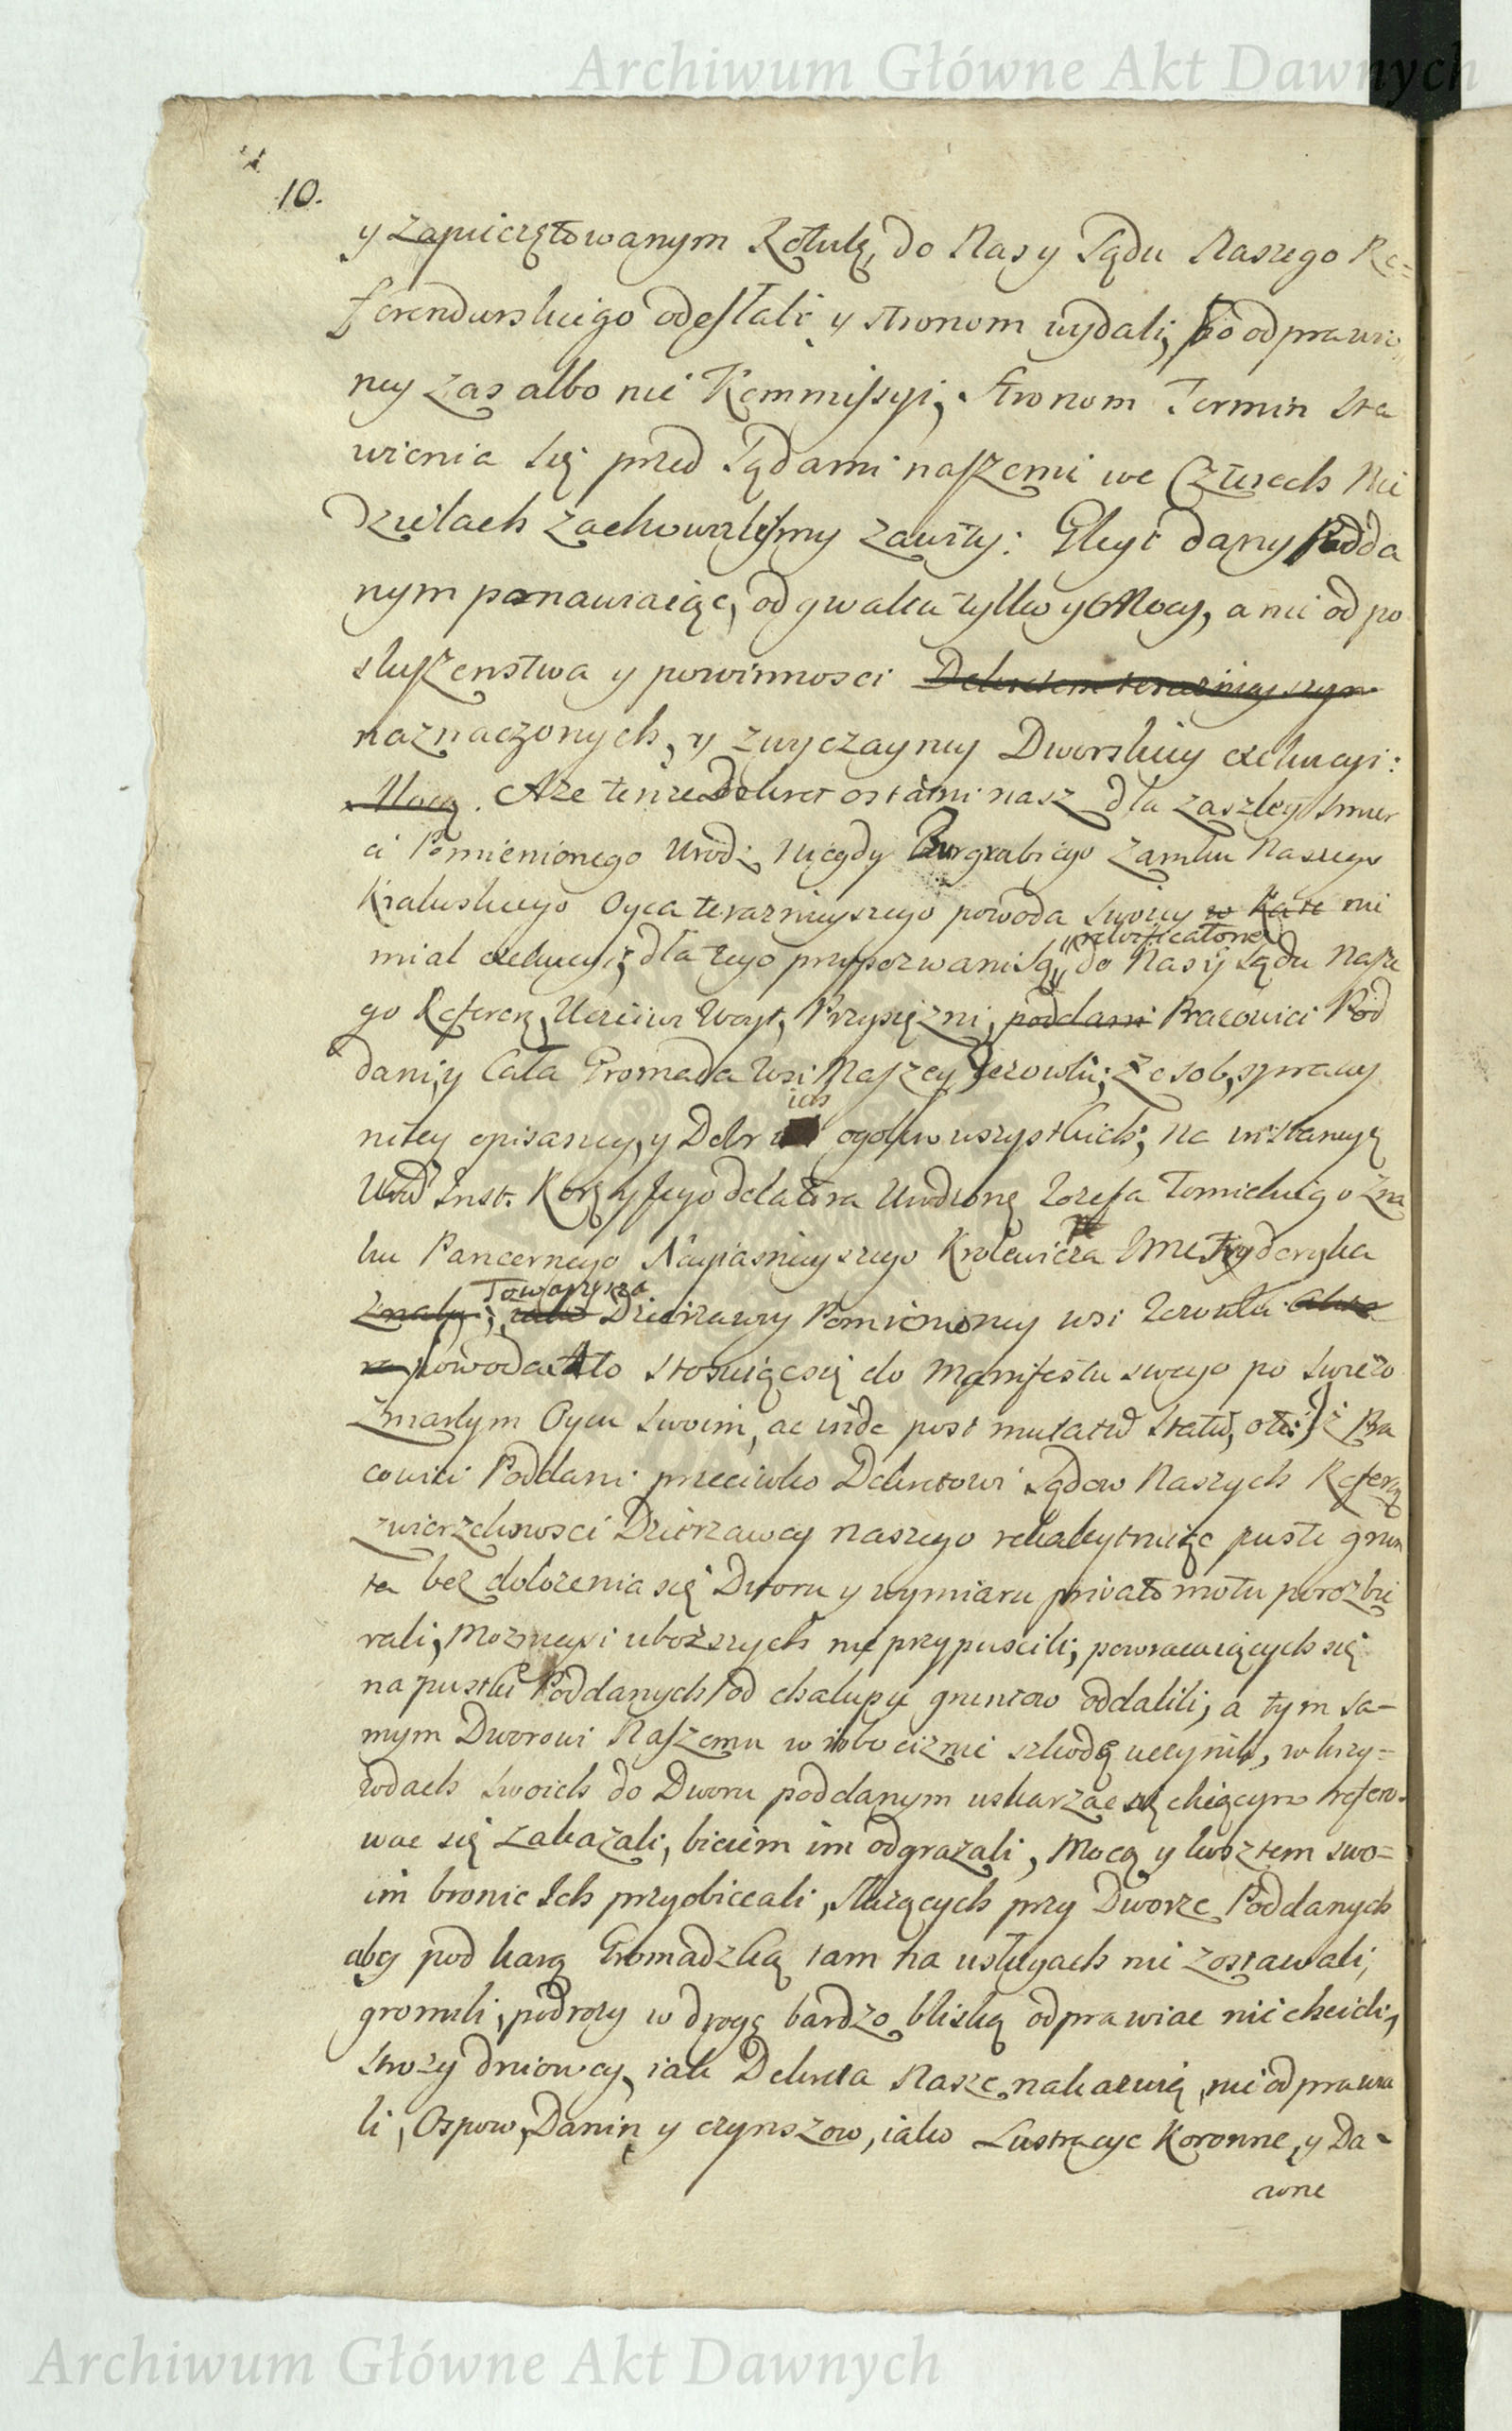 Archiwum Główne Akt Dawnych
10.
y zapieczętowanym Rotulę, do Nas y Sądu Naszego Re=
ferendarskiego odesłali y stronom wydali, Po odprawio
ney zas albo nie Kommissyi, Stronom Termin sta
wienia się przed Sądami naszemi we Czterech Nie
dzielach zachowalismy zawity: Gleyt dany Podda
nym ponawiaiąc, od gwałtu tylko y Mocy, a nie od po
słuszenstwa y powinnosci Dekretem teraznieyszym
naznaczonych, y zwyczayney Dworskiey exekucyi:
Mocą. Aże tenże Dekret ostatni nasz dla zaszłey smier
ci Pomienionego Urodz: niegdy Burgrabiego Zamku Naszego
Krakuskiego Oyca teraznieyszego powoda swoiey w Kate nie
miał exekucyi, dla tego przypozwani są do Nas y Sądu Nasze
reivificatorie
go Referen, Uczciwi Woyt, Przysięzni, poddani Pracowici Pod
dani, y Cała Gromada Wsi Naszey Jezowki; z osob, sprawy
niley opisaney, y Dobr ich ogolnie wszystkich; na instancyą
Urod Inst. Kor: y Jego delatora Urodzone Jozefa Tomickiego Zna
ku Pancernego Nayiasnieyszego Krolewicza Jmci Fryderyka
Znaku, Towarzysza Dzierzawy Pomienioney wsi Jezowka
powoda Ato stosuiąc się do Manifestu swego po swiezo
zmarłym Oycu swoim, ac inde post mutatū statū, oto: iż Pra
cowici Poddani przeciwko Dekretowi Sądow Naszych Referą
zwierzchnosci Dzierzawcy naszego puste grun
ta bez dołozenia się Dworu y wymiaru privato motu porozbie
rali, Moznieysi ubozszych nie przypuscili, powracaiących się
na pustki Poddanych od chałup y gruntow oddalili, a tym sa=
mym Dworowi Naszemu w robociznie szkodę uczynili, w krzy=
wdach swoich do Dworu poddanym uskarzac się chcącym refero=
wac się zakazali, biciem im odgrazali, Mocą y kosztem swo=
im bronic Ich przyobiecali, Słuzących przy Dworze Poddanych
aby pod karą Gromadzką tam na usługach nie zostawali,
gromili, podrozy w drogę bardzo bliską odprawiac nie chcieli,
strozy dniowey, iak Dekreta Nasze nakazuią, nie odprawia
li, Ospow, Danin y czynszow, iako Lustracye Koronne, y Da=
wne
Archiwum Główne Akt Dawnych